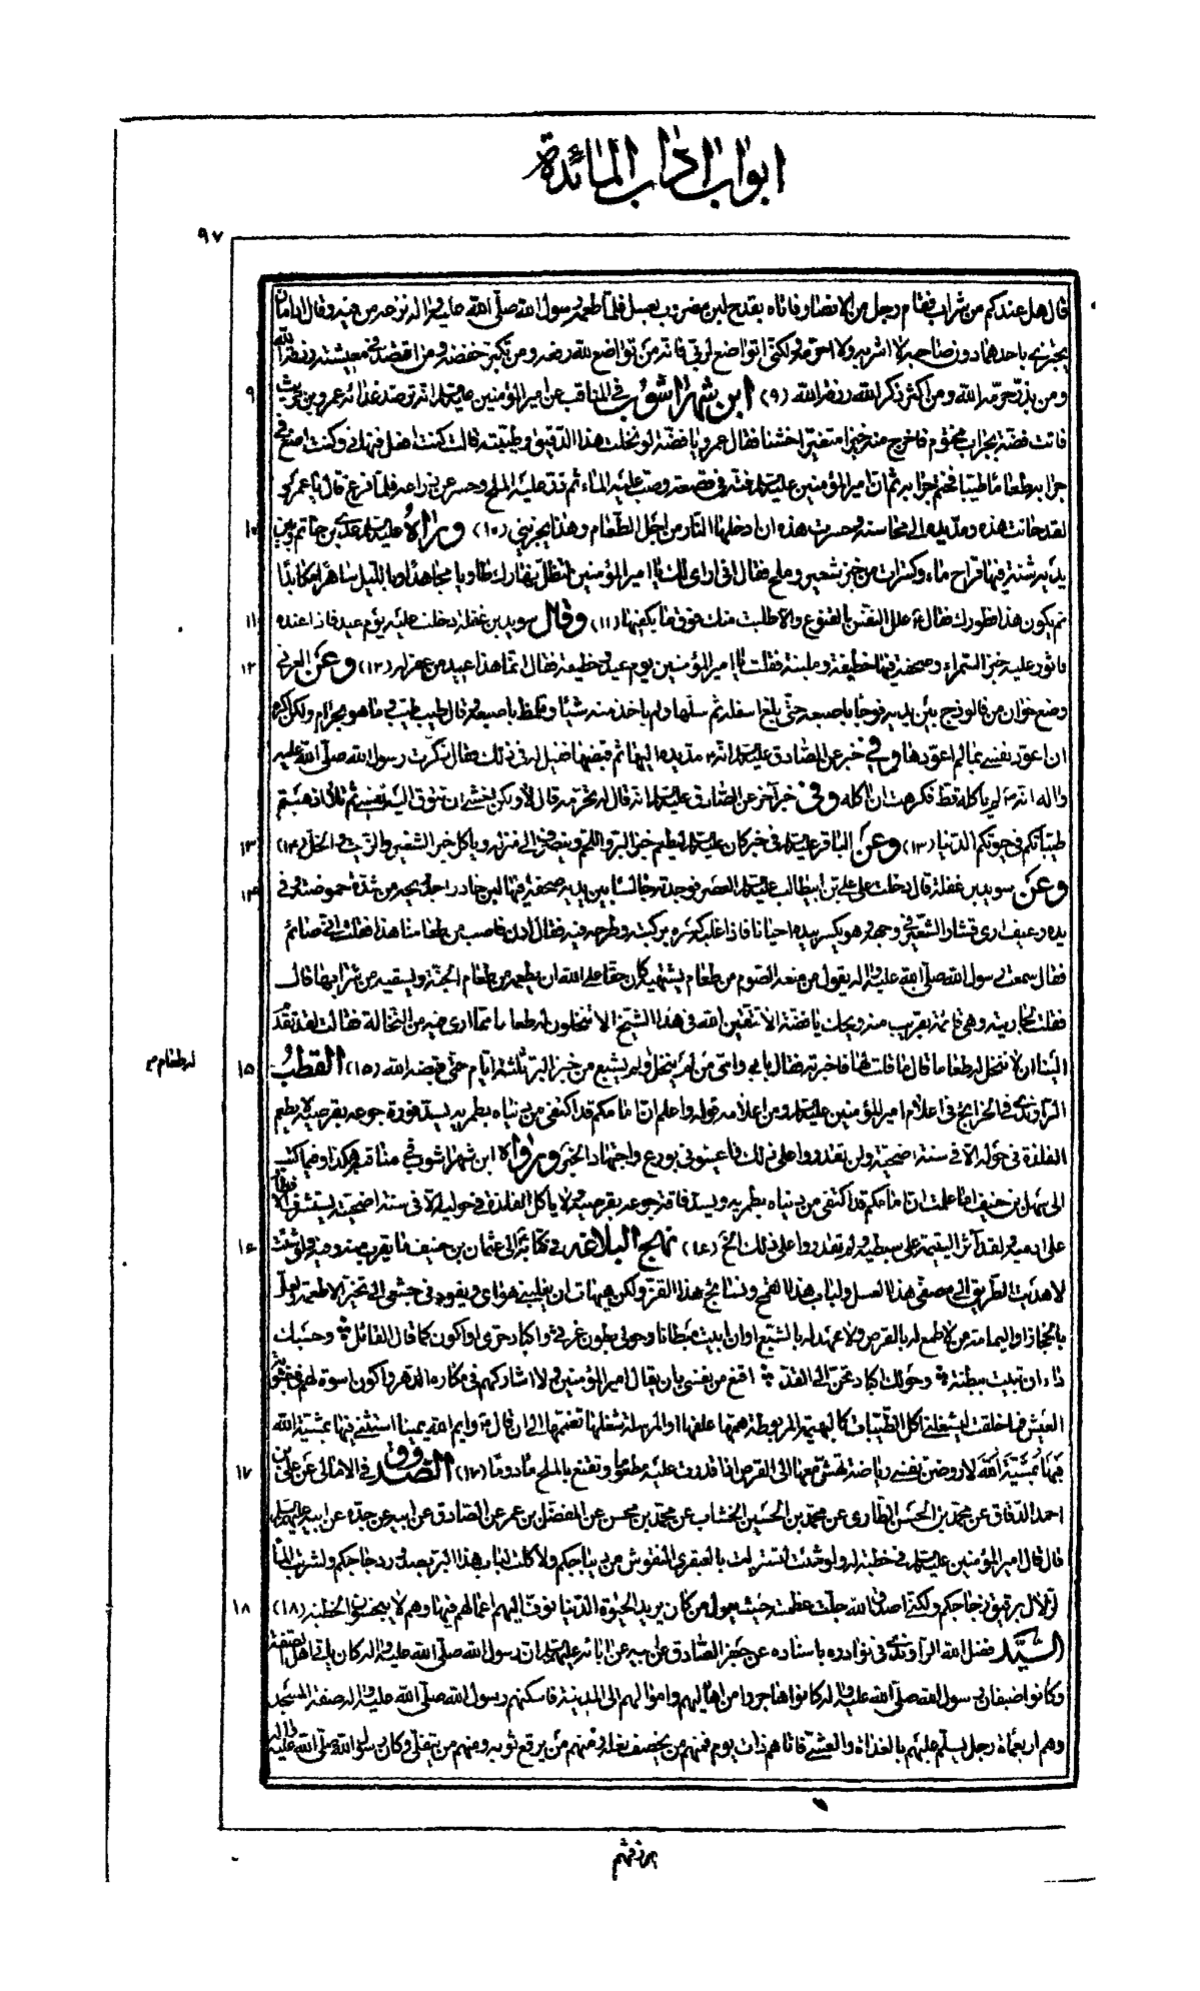 ابواب آداب المائدة
٩٧
قال هل عندكم من شراب فقام رجل من الانصار فاتاه بقدح لبن مضروب بعسل فلما طعمه رسول الله صلى الله عليه واله نزعه من فيه وقال ادامان
يجتزى باحدهما دون صاحبه لا اشربه ولا احرمه ولكنى اتواضع لربى فانه من تواضع لله رفعه ومن تكبر خفضه ومن اقتصد فى معيشته رزقه الله
ومن بذر حرمه الله ومن اكثر ذكر الله رزقه الله (٩) ابن شهراشوب فى المناقب عن امير المؤمنين عليه السلام انه ترصد غدائه عمرو بن حريث ٩
فاتت فضة بجراب مختوم فاخرج منه خبزا متغيرا خشنا فقال عمرو يا فضة لو نخلت هذا الدقيق وطيبته قالت كنت افعل فنهانى وكنت اضع فى
جرابه طعاما طيبا فختم جرابه ثم ان امير المؤمنين عليه السلام فته فى قصعة وصب عليه الماء ثم ذر عليه الملح وحسر عن ذراعه فلما فرغ قال يا عمرو
لقد حانت هذه ومد يده الى محاسنه وخسرت هذه ان ادخلها النار من اجل الطعام وهذا يجزينى (١٠) ورآه عليه السلام عدى بن حاتم وبين ١٠
يديه شنة فيها قراح ماء وكسرات من خبز شعير وملح فقال انى ارى لك يا امير المؤمنين لتظل نهارك طاويا مجاهدا وبالليل ساهرا مكابدا
ثم يكون هذا فطورك فقال ع علل النفس بالقنوع والا طلبت منك فوق ما يكفيها (١١) وقال سويد بن غفلة دخلت عليه يوم عيد فاذا عنده ١١
فاثور عليه خبز السمراء وصحفة فيها خطيفة وملبنة فقلت يا امير المؤمنين يوم عيد وخطيفة فقال انما هذا عيد من غفر له (١٢) وعن العرنى ١٢
وضع خوان من فالوذج بين يديه فوجأ باصبعه حتى بلغ اسفله ثم سلها ولم ياخذ منه شيئا وتلمظ باصبعه وقال طيب طيب وما هو بحرام ولكن اكره
ان اعود نفسى بما لم اعودها وفى خبر عن الصادق عليه السلام انه مد يده اليها ثم قبضها فقيل له فى ذلك فقال ذكرت رسول الله صلى الله عليه
واله انه لم ياكله قط فكرهت ان اكله وفى خبر آخر عن الصادق عليه السلام انه قال له تحرمه قال لا ولكن اخشى ان تتوق اليه نفسى ثم تلا اذهبتم
طيباتكم فى حيوتكم الدنيا (١٣) وعن الباقر عليه السلام فى خبر كان عليه السلام ليطعم خبز البر واللحم وينصرف الى منزله وياكل خبز الشعير والزيت والخل (١٤) ١٣
وعن سويد بن غفلة قال دخلت على على بن ابيطالب عليه السلام العصر فوجدته جالسا بين يديه صحفة فيها لبن حاذر اجد ريحه من شدة حموضته وفى ١٤
يده رغيف ارى قشار الشعير فى وجهه وهو يكسر بيده احيانا فاذا غلبه كسره بركبته وطرحه فيه فقال ادن فاصب من طعامنا هذا فقلت انى صائم
فقال سمعت رسول الله صلى الله عليه واله يقول من منعه الصوم من طعام يشتهيه كان حقا على الله ان يطعمه من طعام الجنة ويسقيه من شرابها قال
فقلت لجاريته وهى قائمة بقريب منه ويحك يا فضة الا تتقين الله فى هذا الشيخ الا تنخلون له طعاما مما ارى فيه من النخالة فقالت لقد تقدم
الينا ان لا ننخل له طعاما قال ما قلت لها فاخبرته فقال بابى وامى من لم ينخل له طعام ولم يشبع من خبز البر ثلثة ايام حتى قبضه الله (١٥) القطب ١٥
الراوندى فى الخرائج فى اعلام امير المؤمنين عليه السلام ومن اعلامه قوله واعلم ان امامكم قد اكتفى من دنياه بطمريه يسد فورة جوعه بقرصيه لا يطعم
الفلذة فى حوله الا فى سنة اضحيته ولن تقدروا على ذلك فاعينونى بورع واجتهاد الخبر ورواه ابن شهراشوب فى مناقبه هكذا وفيما كتب
الى سهل بن حنيف اما علمت ان امامكم قد اكتفى من دنياه بطمريه ويسد فاقة جوعه بقرصيه ولا ياكل الفلذة فى حوليه الا فى سنة اضحيته يستشرف الافطار
على ادميه ولقد آثر اليتيمة على سبطيه ولم تقدروا على ذلك الخ (١٦) نهج البلاغه فى كتابه الى عثمان بن حنيف ما يقرب منه وفيه ولو شئت ١٦
لاهتديت الطريق الى مصفى هذا العسل ولباب هذا القمح ونسائج هذا القز ولكن هيهات ان يغلبنى هواى ويقودنى جشعى الى تخير الاطعمة ولعل
بالحجاز او اليمامة من لا طمع له بالقرص ولا عهد له بالشبع او ان ابيت مبطانا وحولى بطون غرثى واكباد حرى او اكون كما قال القائل وحسبك
داء ان تبيت ببطنة وحولك اكباد تحن الى القد اقنع من نفسى بان يقال امير المؤمنين ولا اشاركهم فى مكاره الدهر او اكون اسوة لهم فى جشوبة
العيش فما خلقت ليشغلنى اكل الطيبات كالبهيمة المربوطة همها علفها او المرسلة شغلها تقممها الى ان قال ع وايم الله يمينا استثنى فيها بمشية الله
لاروضن نفسى رياضة تهش معها الى القرص اذا قدرت عليه مطعوما وتقنع بالملح مادوما (١٧) الصدوق فى الامالى عن على بن ١٧
احمد الدقاق عن محمد بن الحسن الطارى عن محمد بن الحسين الخشاب عن محمد بن محسن عن المفضل بن عمر عن الصادق عن ابيه عن جده عن ابيه عليهم السلام
قال قال امير المؤمنين عليه السلام فى خطبة له ولو شئت لتسربلت بالعبقرى المنقوش من ديباجكم ولاكلت لباب هذا البر بصدور دجاجكم ولشربت الماء
الزلال برقيق زجاجكم ولكنى اصدق الله جلت عظمته حيث يقول من كان يريد الحيوة الدنيا نوف اليهم اعمالهم فيها وهم لا يبخسون الخطبة (١٨) ١٨
السيد فضل الله الراوندى فى نوادره باسناده عن جعفر الصادق عن ابيه عن آبائه عليهم السلام ان رسول الله صلى الله عليه واله كان ياتى اهل الصفة
وكانوا ضيفان رسول الله صلى الله عليه واله كانوا هاجروا من اهاليهم واموالهم الى المدينة فاسكنهم رسول الله صلى الله عليه واله صفة المسجد
وهم اربعمأة رجل يسلم عليهم بالغداة والعشى فاتاهم ذات يوم فمنهم من يخصف نعله ومنهم من يرقع ثوبه ومنهم من يتفلى وكان رسول الله صلى الله عليه واله